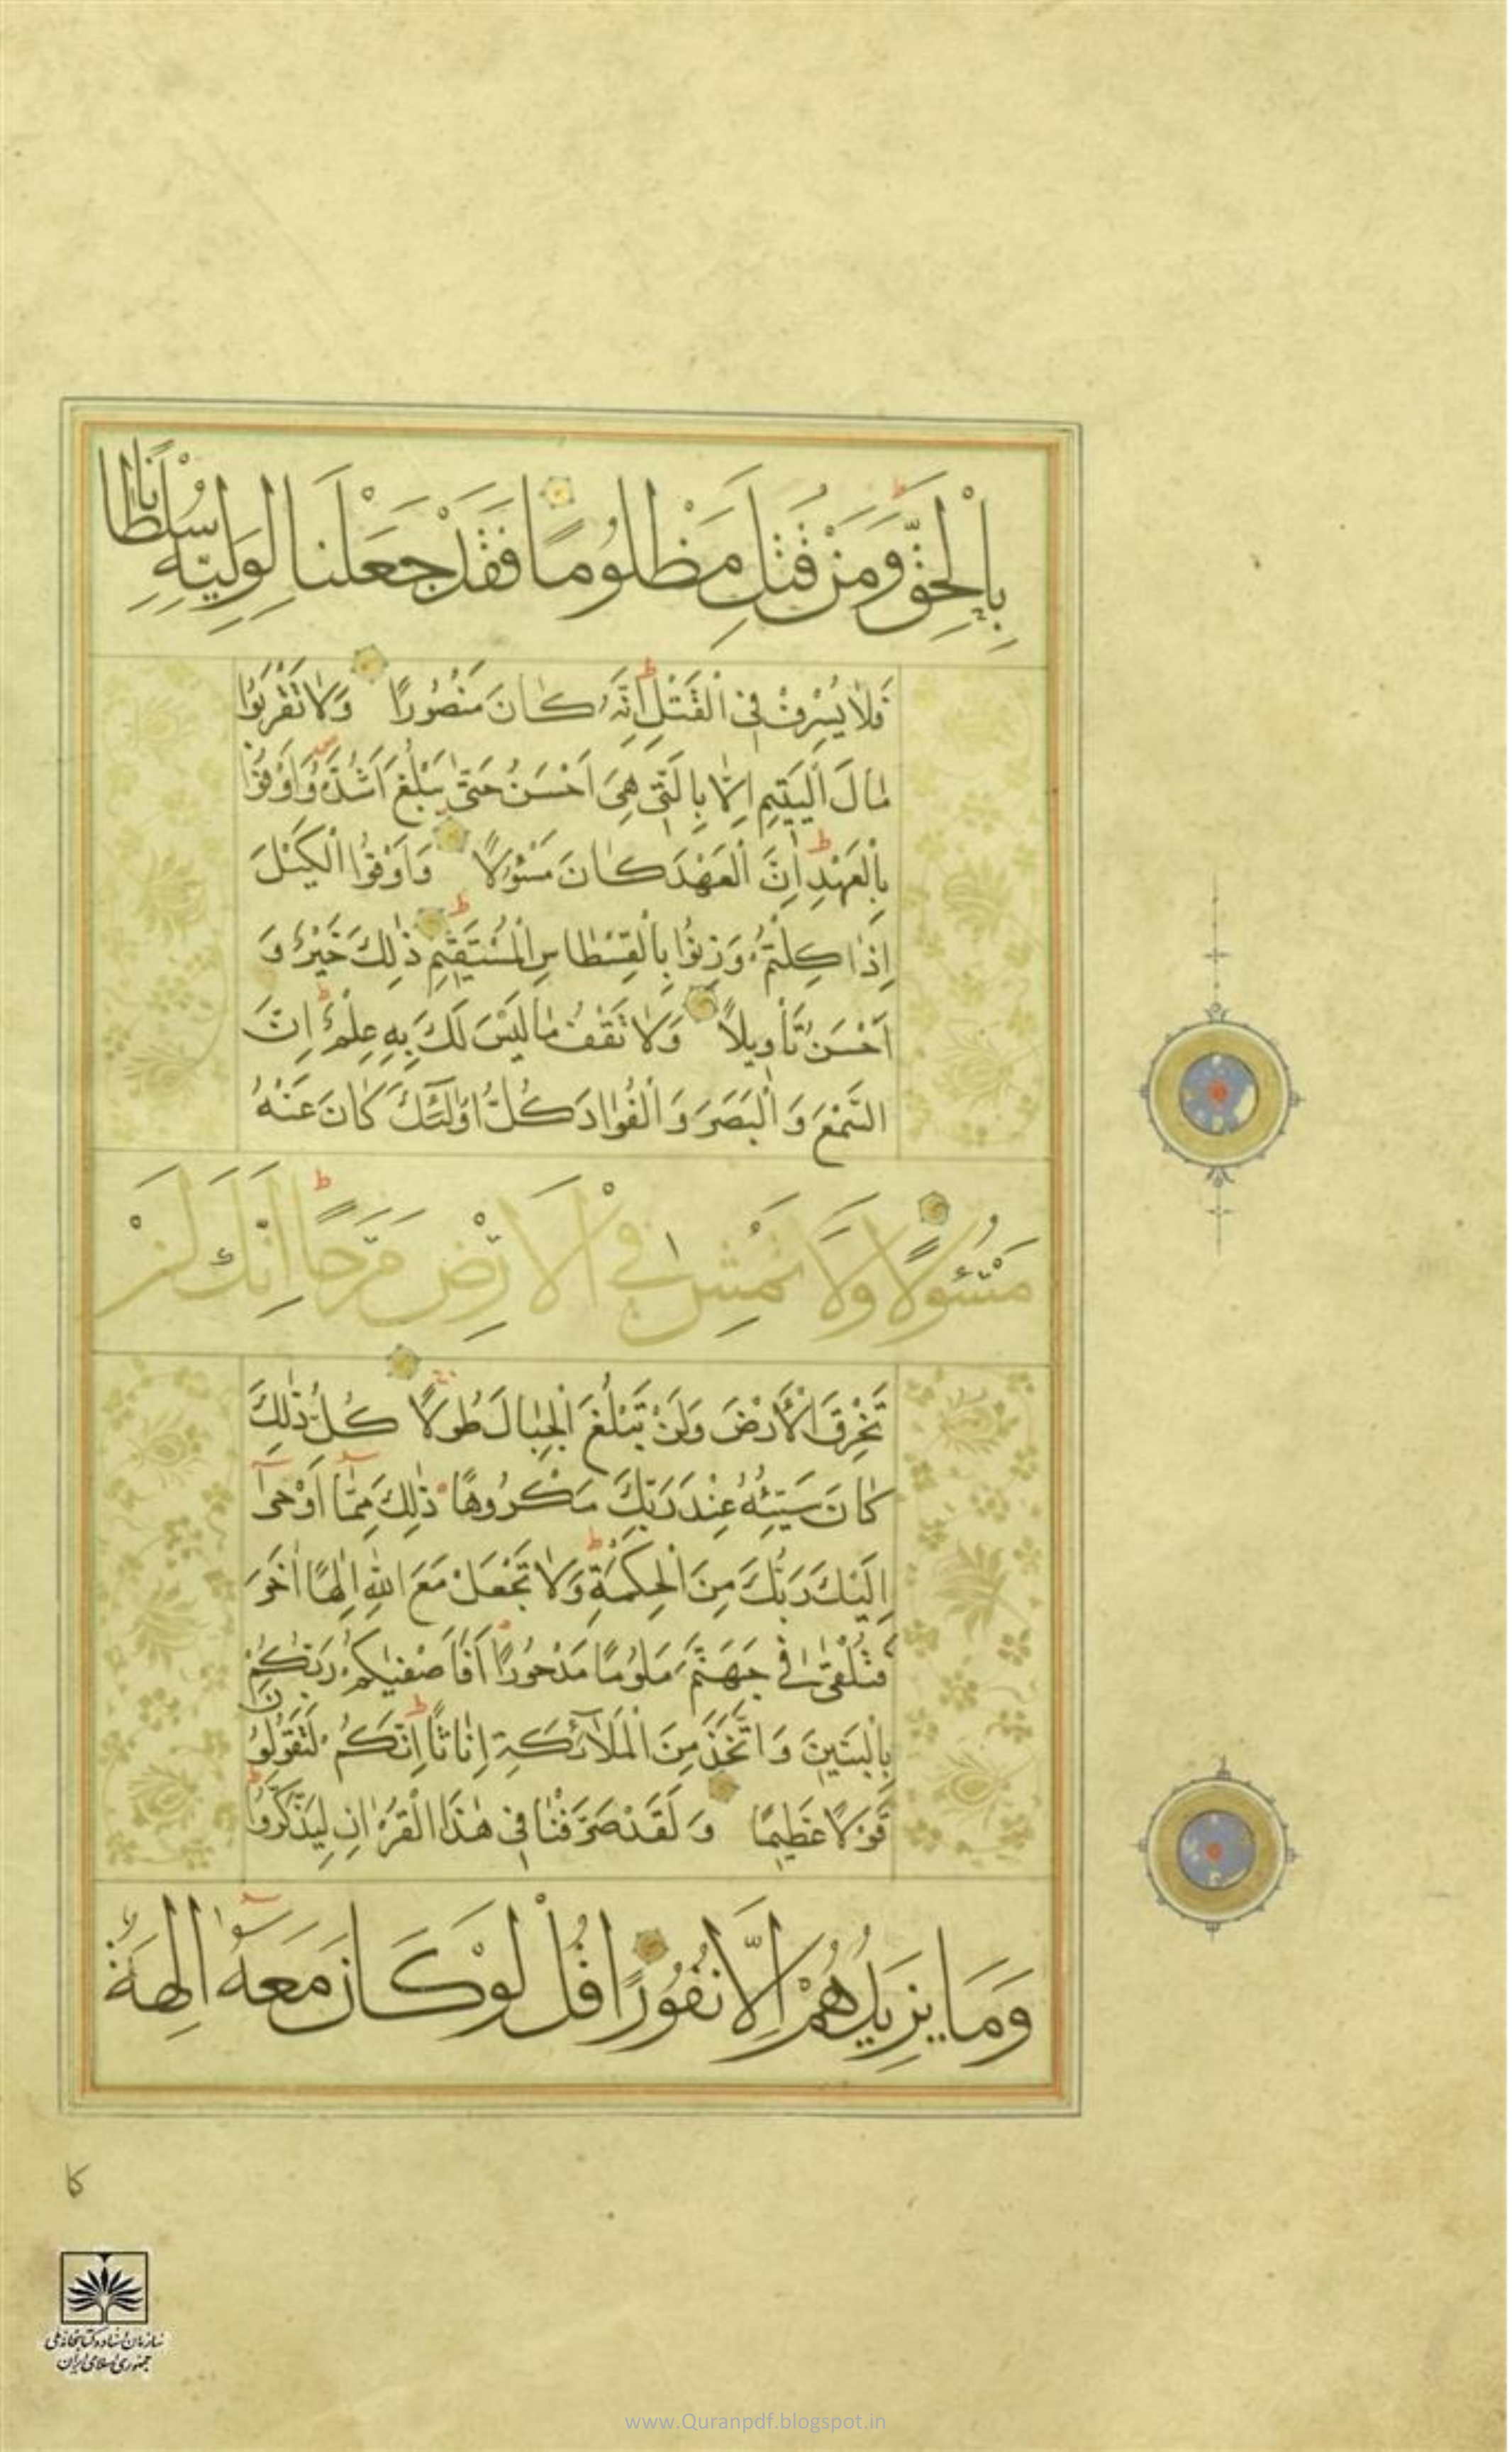 بِالْحَقِّ وَمَنْ قُتِلَ مَظْلُومًا فَقَدْ جَعَلْنَا لِوَلِيِّهِ سُلْطَانًا
فَلَا يُسْرِفْ فِي الْقَتْلِ اِنَّهُ كَانَ مَنْصُورًا وَلَا تَقْرَبُوا
مَالَ الْيَتِيمِ اِلَّا بِالَّتِي هِيَ اَحْسَنُ حَتّٰى يَبْلُغَ اَشُدَّهُ وَاَوْفُوا
بِالْعَهْدِ اِنَّ الْعَهْدَ كَانَ مَسْئُولًا وَاَوْفُوا الْكَيْلَ
اِذَا كِلْتُمْ وَزِنُوا بِالْقِسْطَاسِ الْمُسْتَقِيمِ ذٰلِكَ خَيْرٌ وَ
اَحْسَنُ تَأْوِيلًا وَلَا تَقْفُ مَا لَيْسَ لَكَ بِهِ عِلْمٌ اِنَّ
السَّمْعَ وَالْبَصَرَ وَالْفُوَادَ كُلُّ اُولٰئِكَ كَانَ عَنْهُ
مَسْئُولًا وَلَا تَمْشِ فِي الْاَرْضِ مَرَحًا اِنَّكَ لَنْ
تَخْرِقَ الْاَرْضَ وَلَنْ تَبْلُغَ الْجِبَالَ طُولًا كُلُّ ذٰلِكَ
كَانَ سَيِّئُهُ عِنْدَ رَبِّكَ مَكْرُوهًا ذٰلِكَ مِمَّا اَوْحٰى
اِلَيْكَ رَبُّكَ مِنَ الْحِكْمَةِ وَلَا تَجْعَلْ مَعَ اللّٰهِ اِلٰهًا اٰخَرَ
فَتُلْقٰى فِي جَهَنَّمَ مَلُومًا مَدْحُورًا اَفَاَصْفٰيكُمْ رَبُّكُمْ
بِالْبَنِينَ وَاتَّخَذَ مِنَ الْمَلَائِكَةِ اِنَاثًا اِنَّكُمْ لَتَقُولُونَ
قَوْلًا عَظِيمًا وَلَقَدْ صَرَّفْنَا فِي هٰذَا الْقُرْاٰنِ لِيَذَّكَّرُوا
وَمَا يَزِيدُهُمْ اِلَّا نُفُورًا قُلْ لَوْ كَانَ مَعَهُ اٰلِهَةٌ
كا
سازمان اسناد و کتابخانه ملی
جمهوری اسلامی ایران
www.Quranpdf.blogspot.in